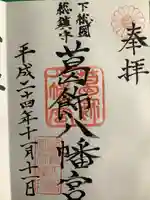 奉拝
下総國
総鎮守
葛飾八幡宮
平成二十四年十一月十一日